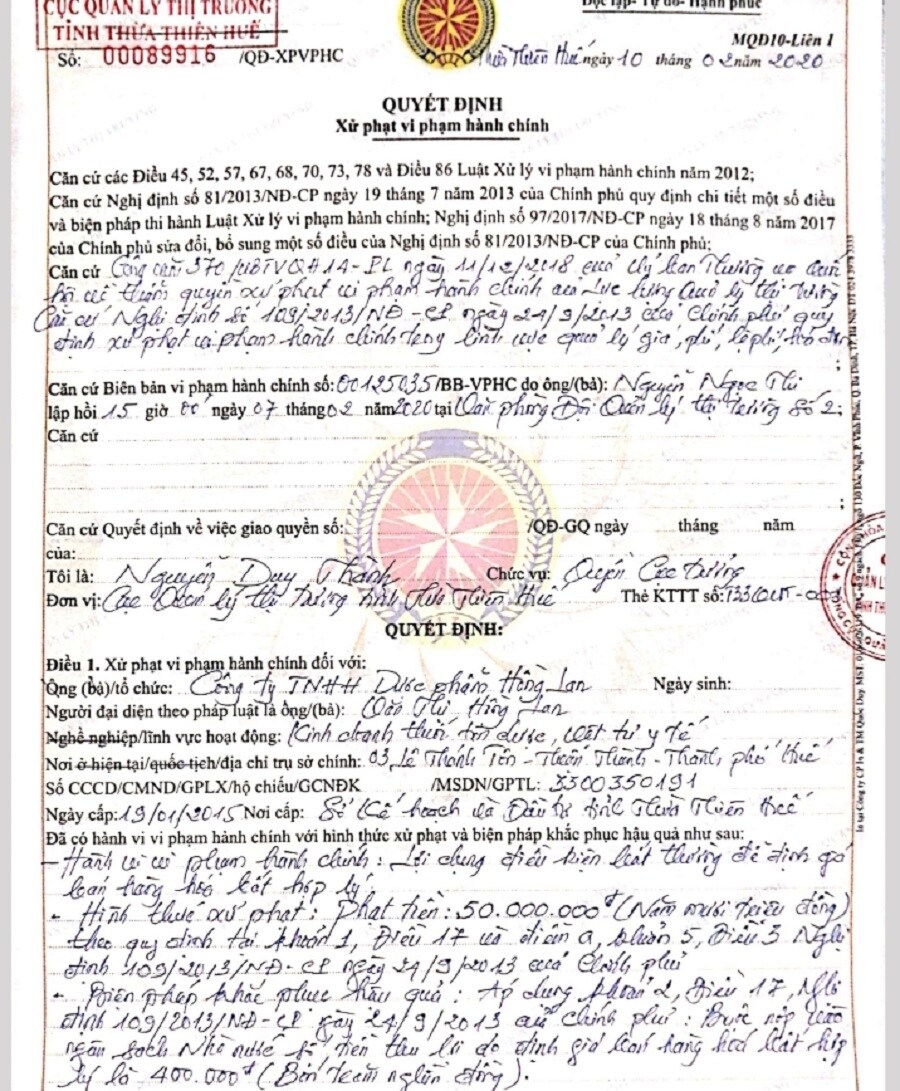 CỤC QUẢN LÝ THỊ TRƯỜNG
TỈNH THỪA THIÊN HUẾ
Độc lập- Tự do- Hạnh phúc
MQĐ10-Liên 1
Số: 00089916 /QĐ-XPVPHC
Thừa Thiên Huế ngày 10 tháng 02 năm 2020
QUYẾT ĐỊNH
Xử phạt vi phạm hành chính
Căn cứ các Điều 45, 52, 57, 67, 68, 70, 73, 78 và Điều 86 Luật Xử lý vi phạm hành chính năm 2012;
Căn cứ Nghị định số 81/2013/NĐ-CP ngày 19 tháng 7 năm 2013 của Chính phủ quy định chi tiết một số điều
và biện pháp thi hành Luật Xử lý vi phạm hành chính; Nghị định số 97/2017/NĐ-CP ngày 18 tháng 8 năm 2017
của Chính phủ sửa đổi, bổ sung một số điều của Nghị định số 81/2013/NĐ-CP của Chính phủ;
Căn cứ Công văn 370/UBTVQH14-PL ngày 11/12/2018 của Uỷ ban Thường vụ Quốc
hội về thẩm quyền xử phạt vi phạm hành chính của Lực lượng Quản lý thị trường
Căn cứ Nghị định số 109/2013/NĐ-CP ngày 24/9/2013 của Chính phủ quy
định xử phạt vi phạm hành chính trong lĩnh vực quản lý giá, phí, lệ phí, hóa đơn
Căn cứ Biên bản vi phạm hành chính số: 00125035/BB-VPHC do ông/(bà): Nguyễn Ngọc Thi
lập hồi 15 giờ 00 ngày 07 tháng 02 năm 2020 tại Văn phòng Đội Quản lý thị trường số 2;
Căn cứ
;
Căn cứ Quyết định về việc giao quyền số: /QĐ-GQ ngày tháng năm
của:
Tôi là: Nguyễn Duy Thành Chức vụ: Quyền Cục trưởng
Đơn vị: Cục Quản lý thị trường tỉnh Thừa Thiên Huế Thẻ KTTT số:
QUYẾT ĐỊNH:
Điều 1. Xử phạt vi phạm hành chính đối với:
Ông (bà)/tổ chức: Công ty TNHH Dược phẩm Hồng Lan Ngày sinh:
Người đại diện theo pháp luật là ông/(bà): Văn Thị Hồng Lan
Nghề nghiệp/lĩnh vực hoạt động: Kinh doanh thuốc tân dược, vật tư y tế
Nơi ở hiện tại/quốc tịch/địa chỉ trụ sở chính: 03 Lê Thánh Tôn - Thuận Thành - Thành phố Huế
Số CCCD/CMND/GPLX/hộ chiếu/GCNĐK /MSDN/GPTL: 3300350191
Ngày cấp: 19/01/2015 Nơi cấp: Sở Kế hoạch và Đầu tư tỉnh Thừa Thiên Huế
Đã có hành vi vi phạm hành chính với hình thức xử phạt và biện pháp khắc phục hậu quả như sau:
- Hành vi vi phạm hành chính: Lợi dụng điều kiện bất thường để định giá
bán hàng hóa bất hợp lý.
- Hình thức xử phạt: Phạt tiền: 50.000.000đ (Năm mươi triệu đồng)
theo quy định tại khoản 1, Điều 17 và điểm a, khoản 5, Điều 3 Nghị
định 109/2013/NĐ-CP ngày 24/9/2013 của Chính phủ
- Biện pháp khắc phục hậu quả: Áp dụng khoản 2, Điều 17, Nghị
định 109/2013/NĐ-CP ngày 24/9/2013 của Chính phủ: Buộc nộp vào
ngân sách Nhà nước số tiền thu lợi do định giá bán hàng hoá bất hợp
lý là 400.000đ (Bốn trăm nghìn đồng).